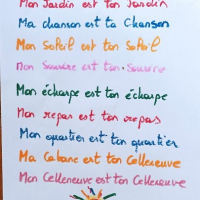 Mon Jardin est ton Jardin
Ma chanson est ta Chanson
Mon Soleil est ton Soleil
Mon Sourire est ton Sourire
Mon écharpe est ton écharpe
Mon repas est ton repas
Mon quartier est ton quartier
Ma Cabane est ton Celleneuve
Mon Celleneuve est ton Celleneuve